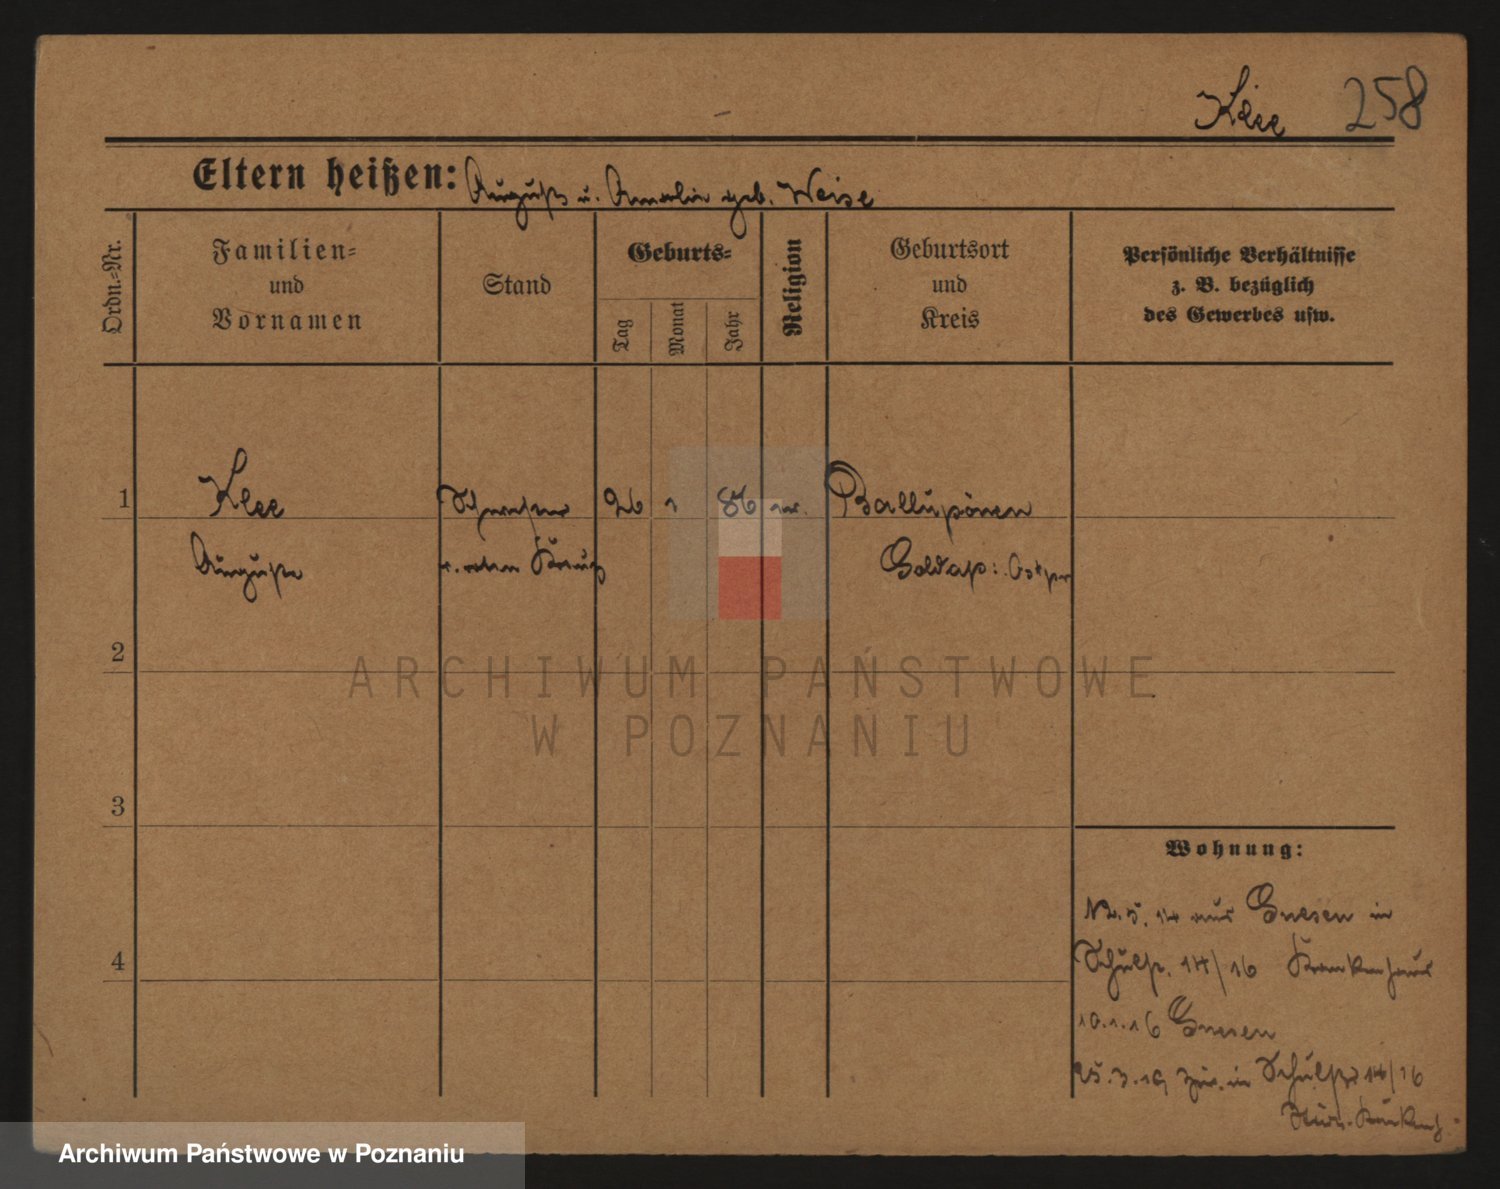 Klee 258
Eltern heißen: August u. Amalie geb. Weise
Ordn.=Nr.
Familien=
und
Vornamen
Stand
Geburts=
Tag
Monat
Jahr
Religion
Geburtsort
und
Kreis
Persönliche Verhältnisse
z. B. bezüglich
des Gewerbes usw.
1 Klee Schwester 26 1 86 ev. Ballupönen
Auguste v. roten Kreuz Goldap: Ostpr
2
3
4
Wohnung:
12.5.14 aus Gnesen in
Schulstr. 14/16 Krankenhaus
10.1.16 Gnesen
25.3.19 zur. in Schulstr 14/16
ARCHIWUM PAŃSTWOWE
W POZNANIU
Archiwum Państwowe w Poznaniu